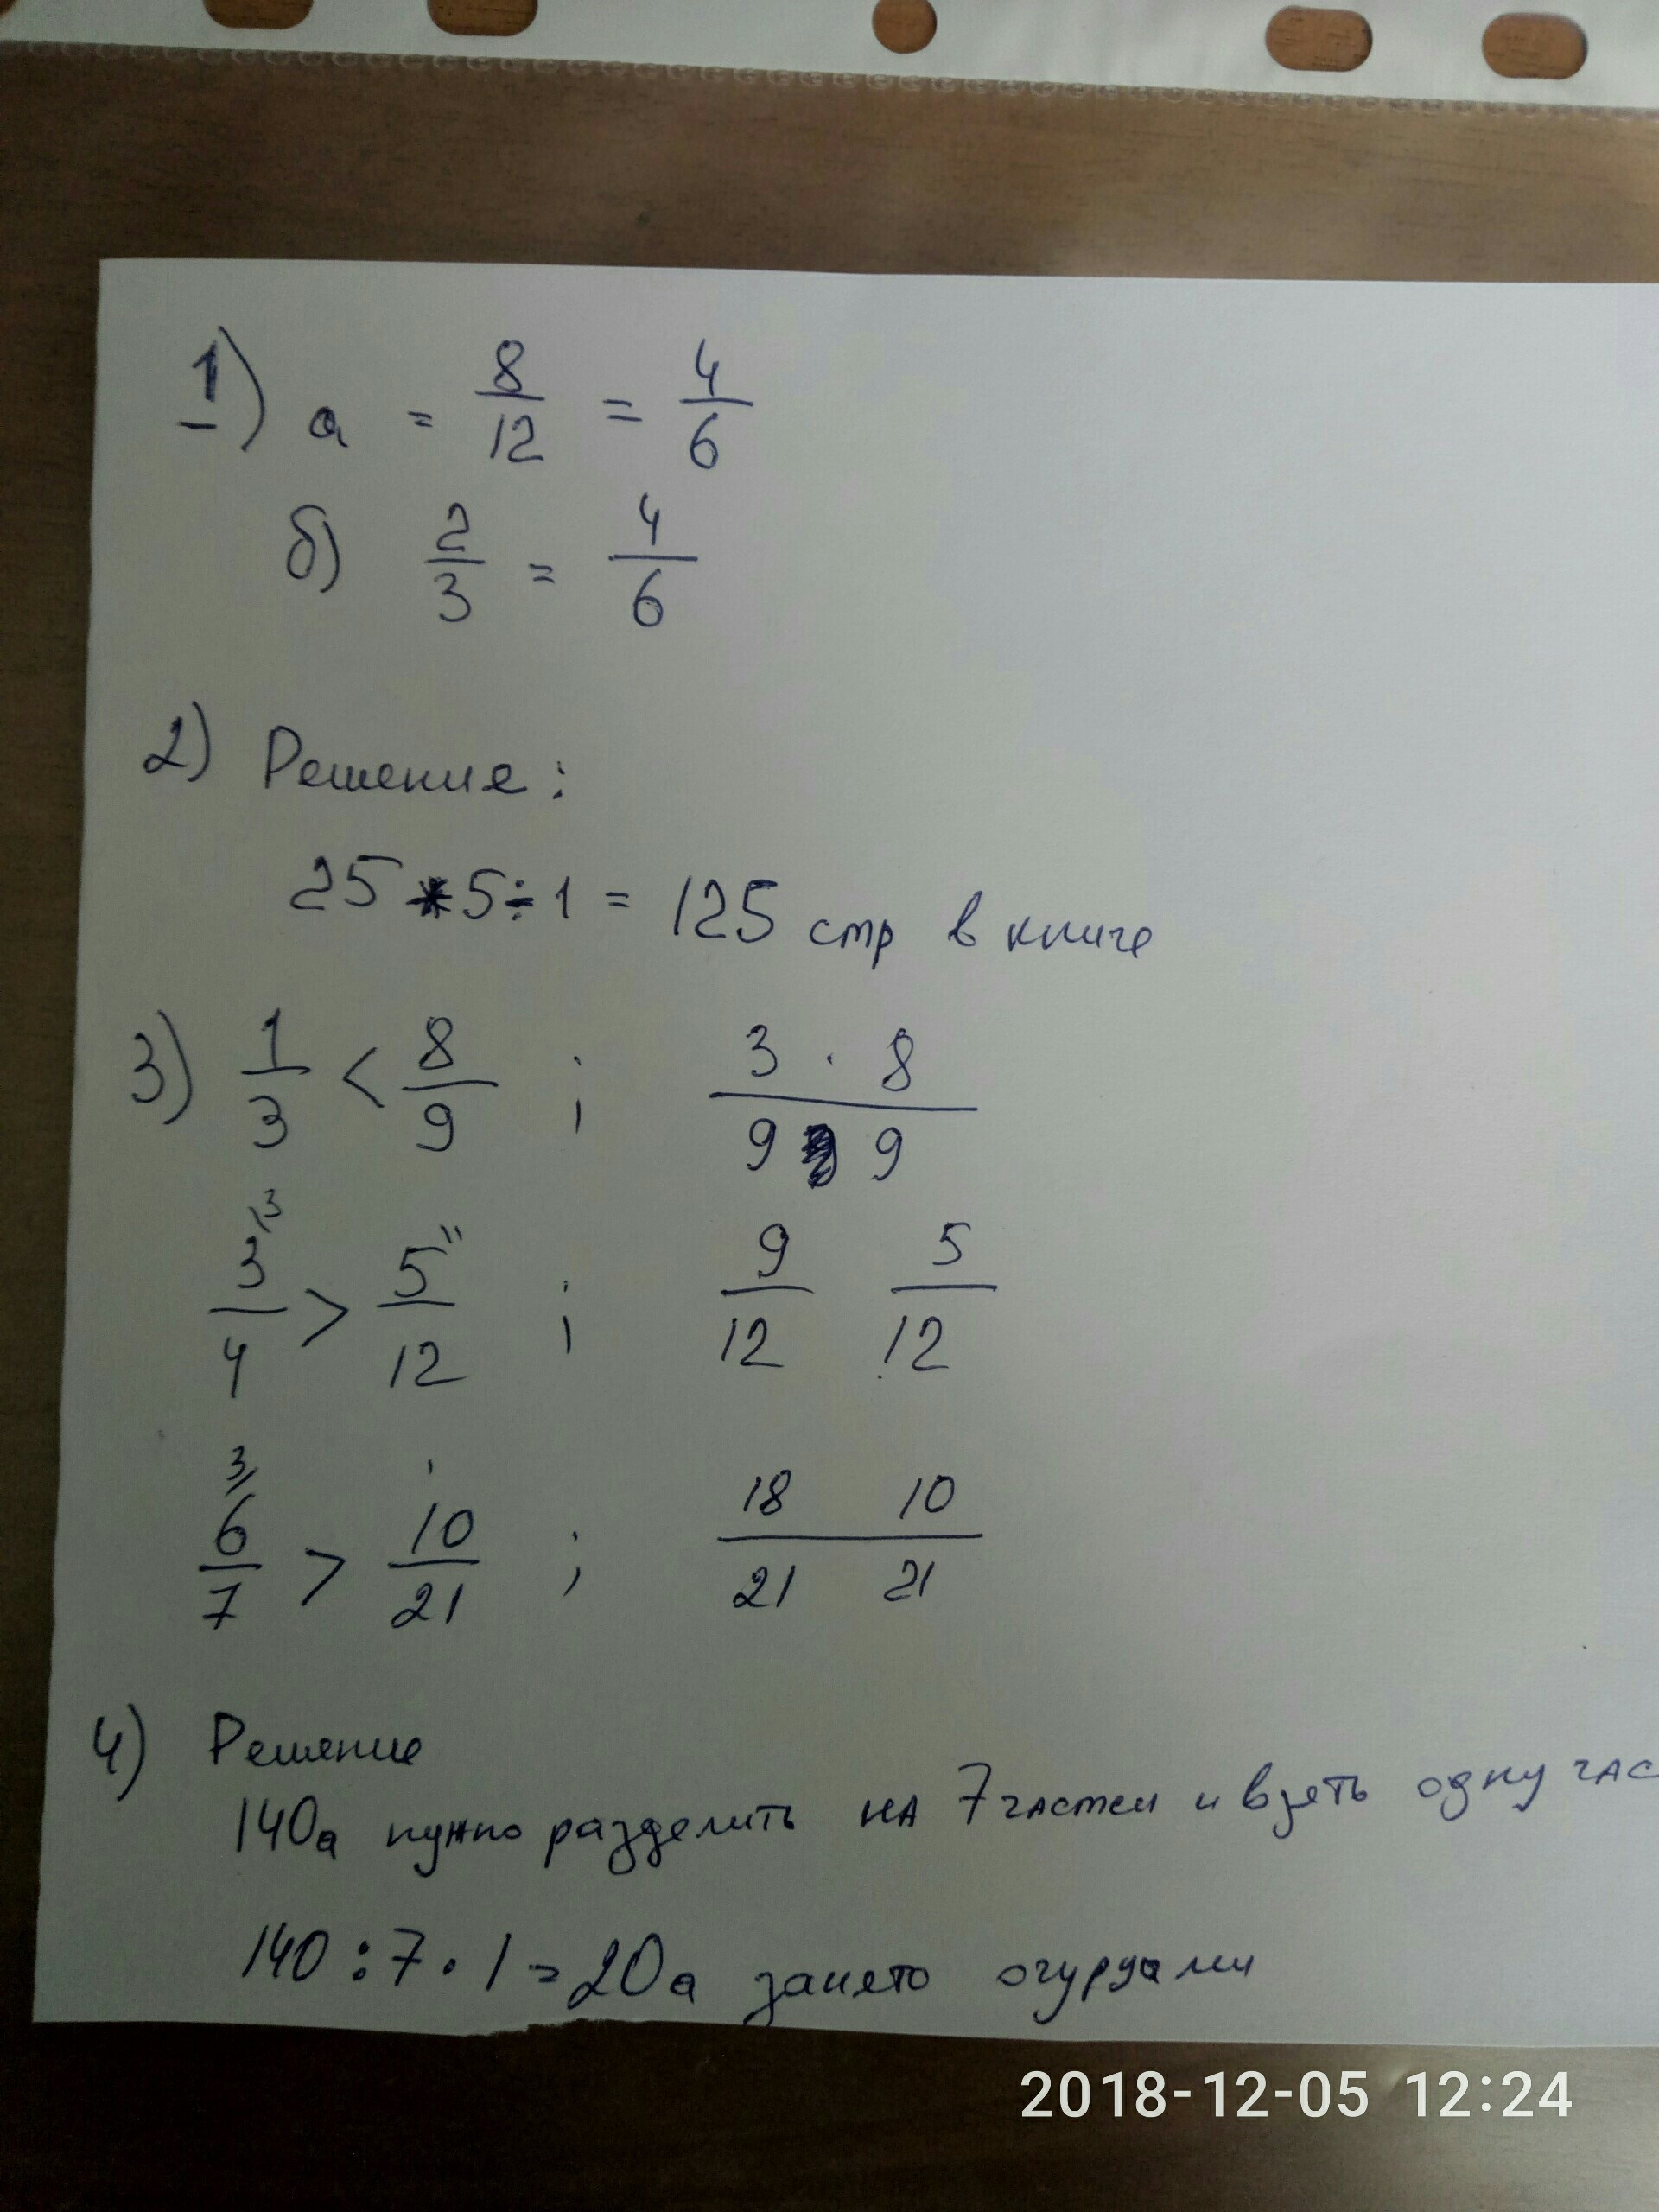 1) а = 8/12 = 4/6
б) 2/3 = 4/6
2) Решение:
25 * 5 ÷ 1 = 125 стр в книге
3) 1/3 < 8/9 ; 3 · 8 / 9 9
3/4 > 5/12 ; 9/12 5/12
6/7 > 10/21 ; 18 10 / 21 21
4) Решение
140а нужно разделить на 7 частей и взять одну час
140 : 7 · 1 = 20а занято огурцами
2018-12-05 12:24